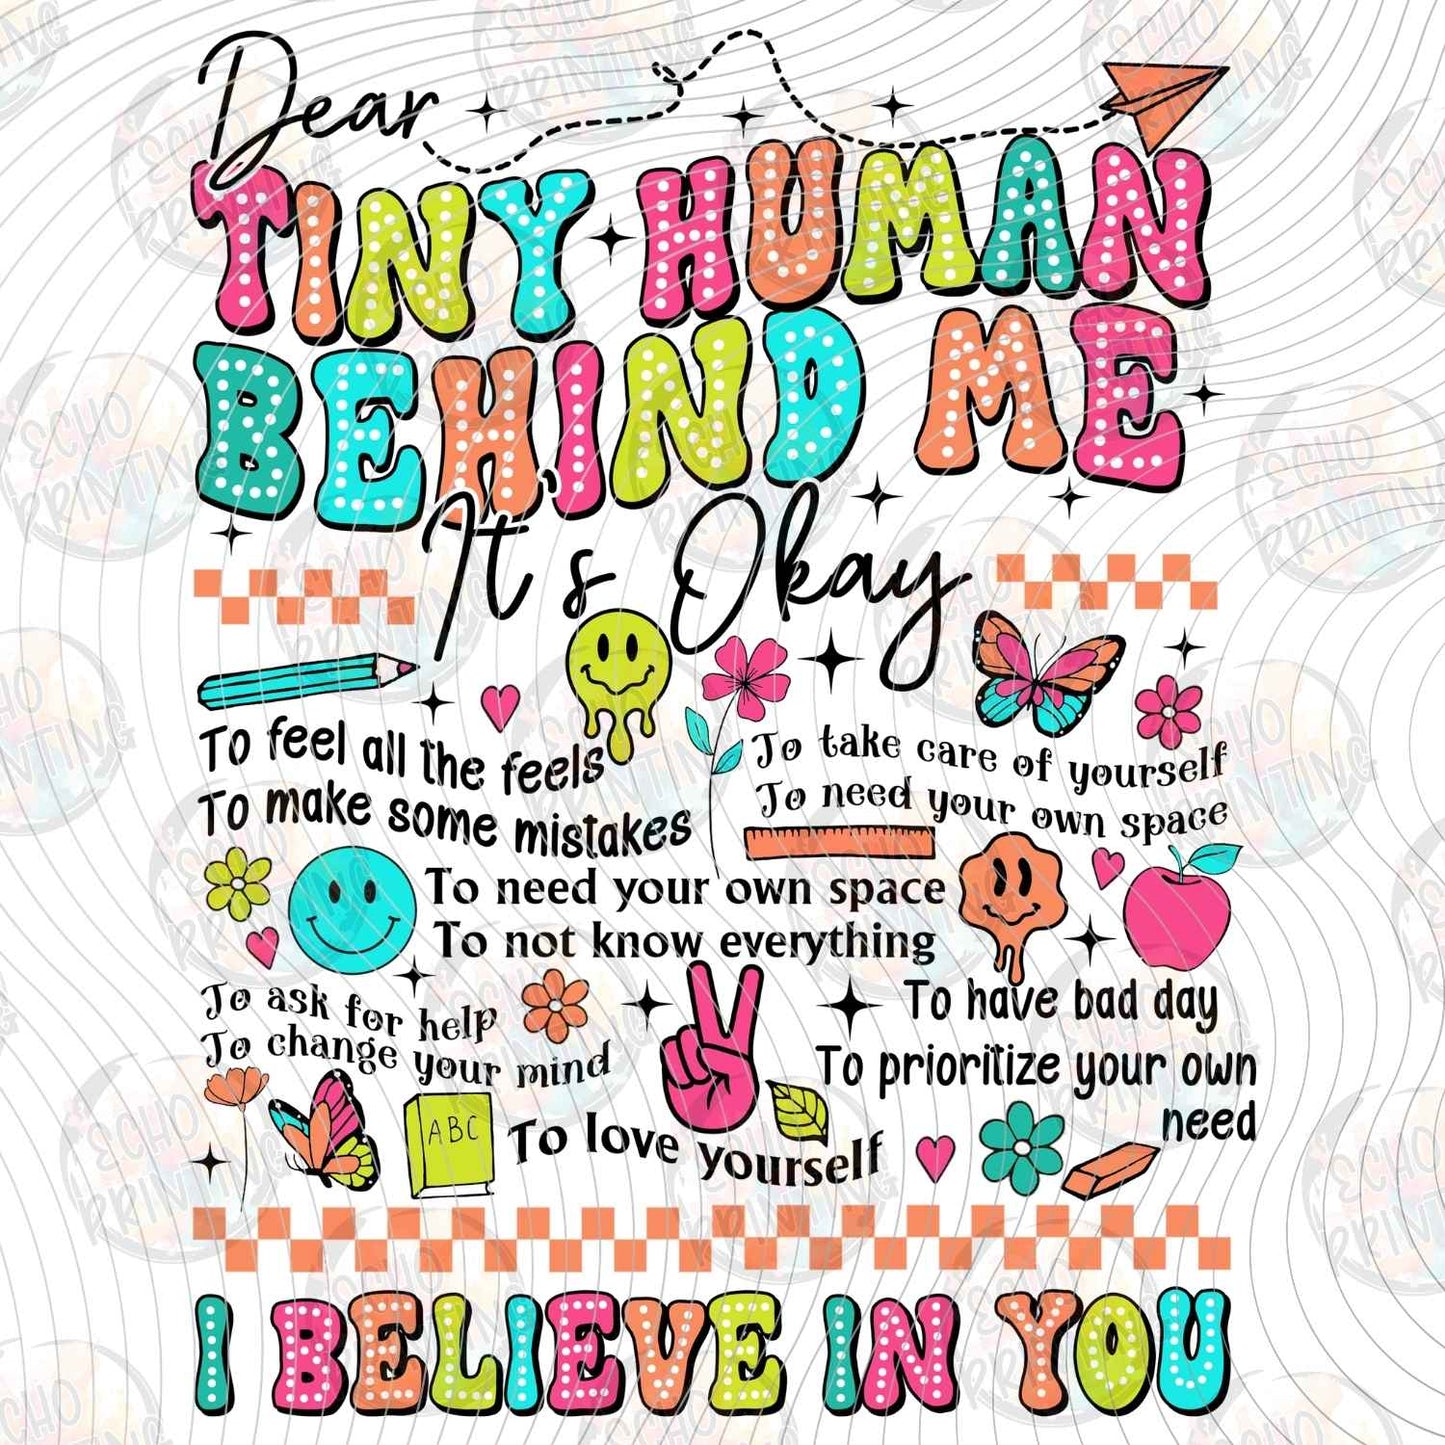 Dear
TINY HUMAN
BEHIND ME
It's Okay
To feel all the feels
To make some mistakes
To take care of yourself
To need your own space
To need your own space
To not know everything
To ask for help
To change your mind
To have bad day
To prioritize your own
need
ABC
To love yourself
I BELIEVE IN YOU
ECHO
PRINTING